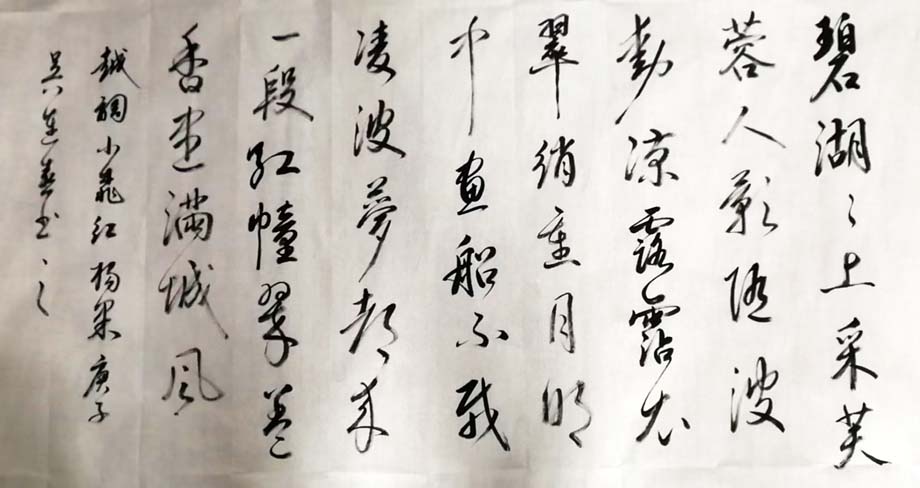 碧湖〻上采芙
蓉人影随波
動凉露霑衣
翠绡重月明
中畫船不载
凌波夢都来
一段红幢翠盖
香尽满城风
越調小桃红 杨果 庚子
吴 书